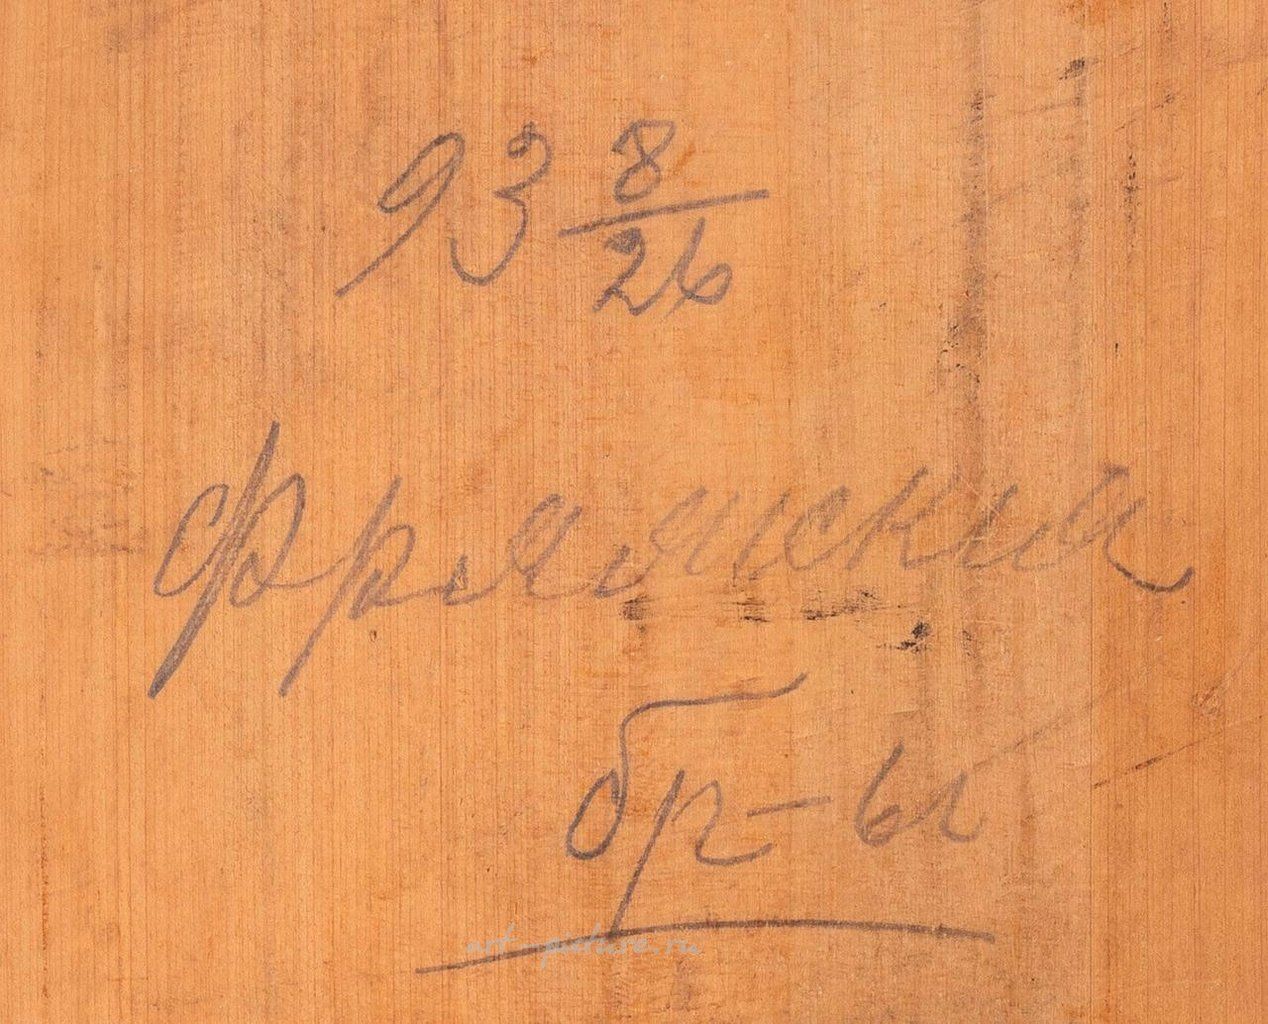 93 8/26
Фряянския
бр-ы
art-picture.ru